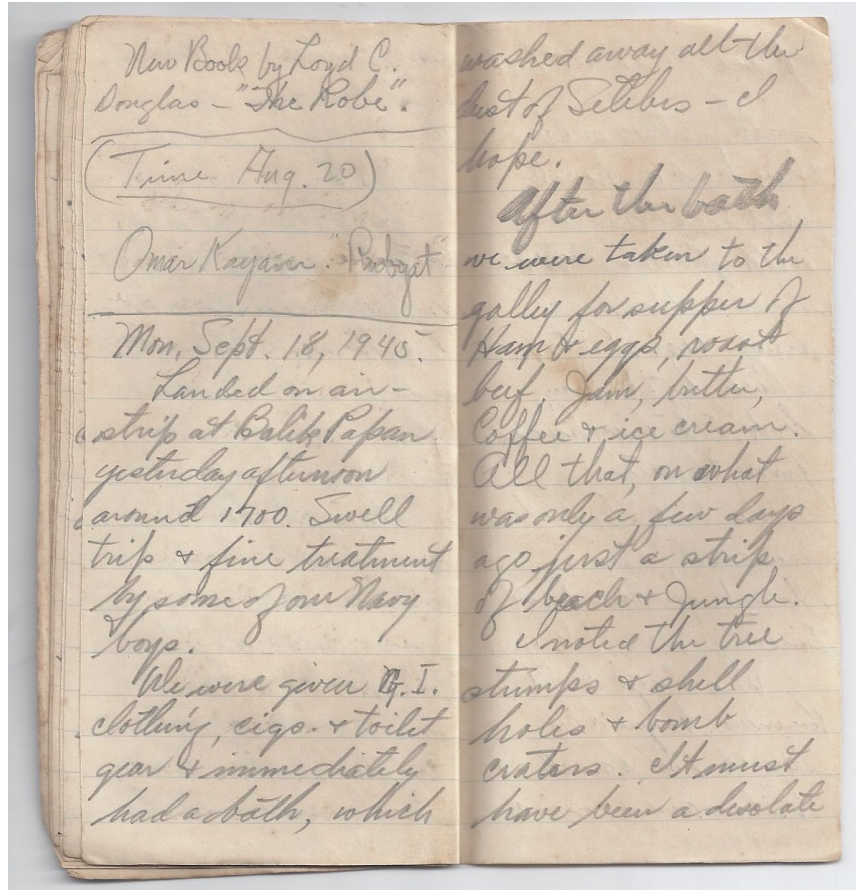 New Book by Loyd C.
Douglas - "The Robe".
(Time Aug. 20)
Omar Kayam. "Rhobyat"
Mon, Sept. 18, 1945.
Landed on air-
strip at Balik Papan
yesterday afternoon
around 1700. Swell
trip & fine treatment
by some of our Navy
boys.
We were given G.I.
clothing, cigs. & toilet
gear & immediately
had a bath, which
washed away all the
dust of Selebes - I
hope.
After the bath
we were taken to the
galley for supper of
Ham & eggs, roast
beef, Jam, butter,
Coffee & ice cream.
All that, on what
was only a few days
ago just a strip
of beach & Jungle.
I noted the tree
stumps & shell
holes & bomb
craters. It must
have been a desolate